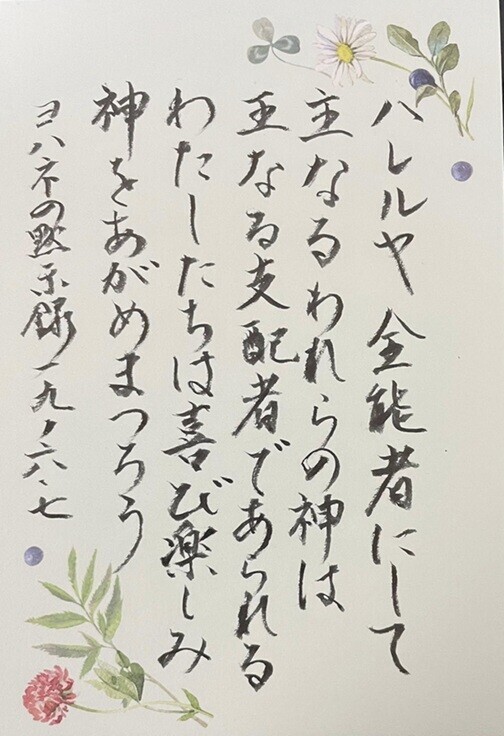 ハレルヤ 全能者にして
主なるわれらの神は
王なる支配者であられる
わたしたちは喜び楽しみ
神をあがめまつろう
ヨハネの黙示録一九ノ六、七